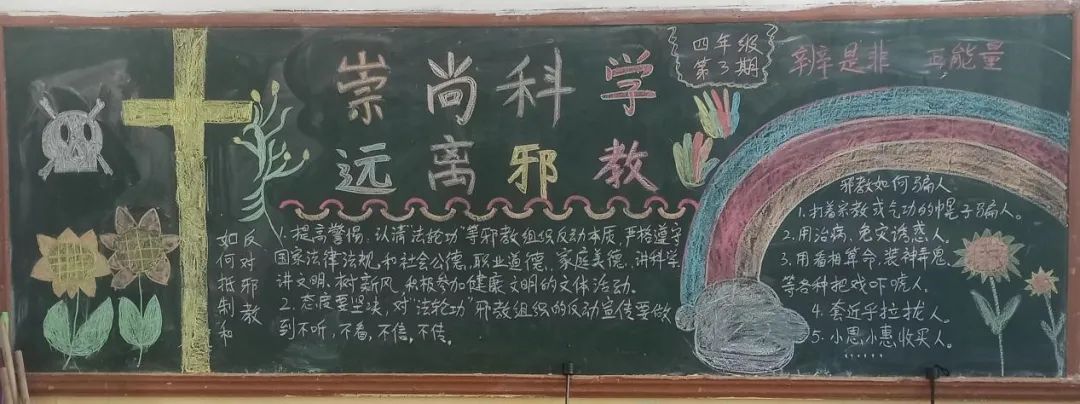 崇尚科学
远离邪教
四年级
第3期
辨是非 正能量
如何抵制和
反对邪教
1.提高警惕、认清法轮功"等邪教组织反动本质,严格遵守
国家法律法规,和社会公德、职业道德、家庭美德、讲科学
讲文明、树新风,积极参加健康文明的文体活动。
2.态度要坚决,对"法轮功"邪教组织的反动宣传要做
到不听,不看,不信,不传。
邪教如何骗人
1.打着宗教或气功的幌子骗人。
2.用治病、免灾诱惑人。
3.用看相算命,装神弄鬼
等各种把戏吓唬人。
4.套近乎拉拢人。
5.小恩小惠收买人。
......